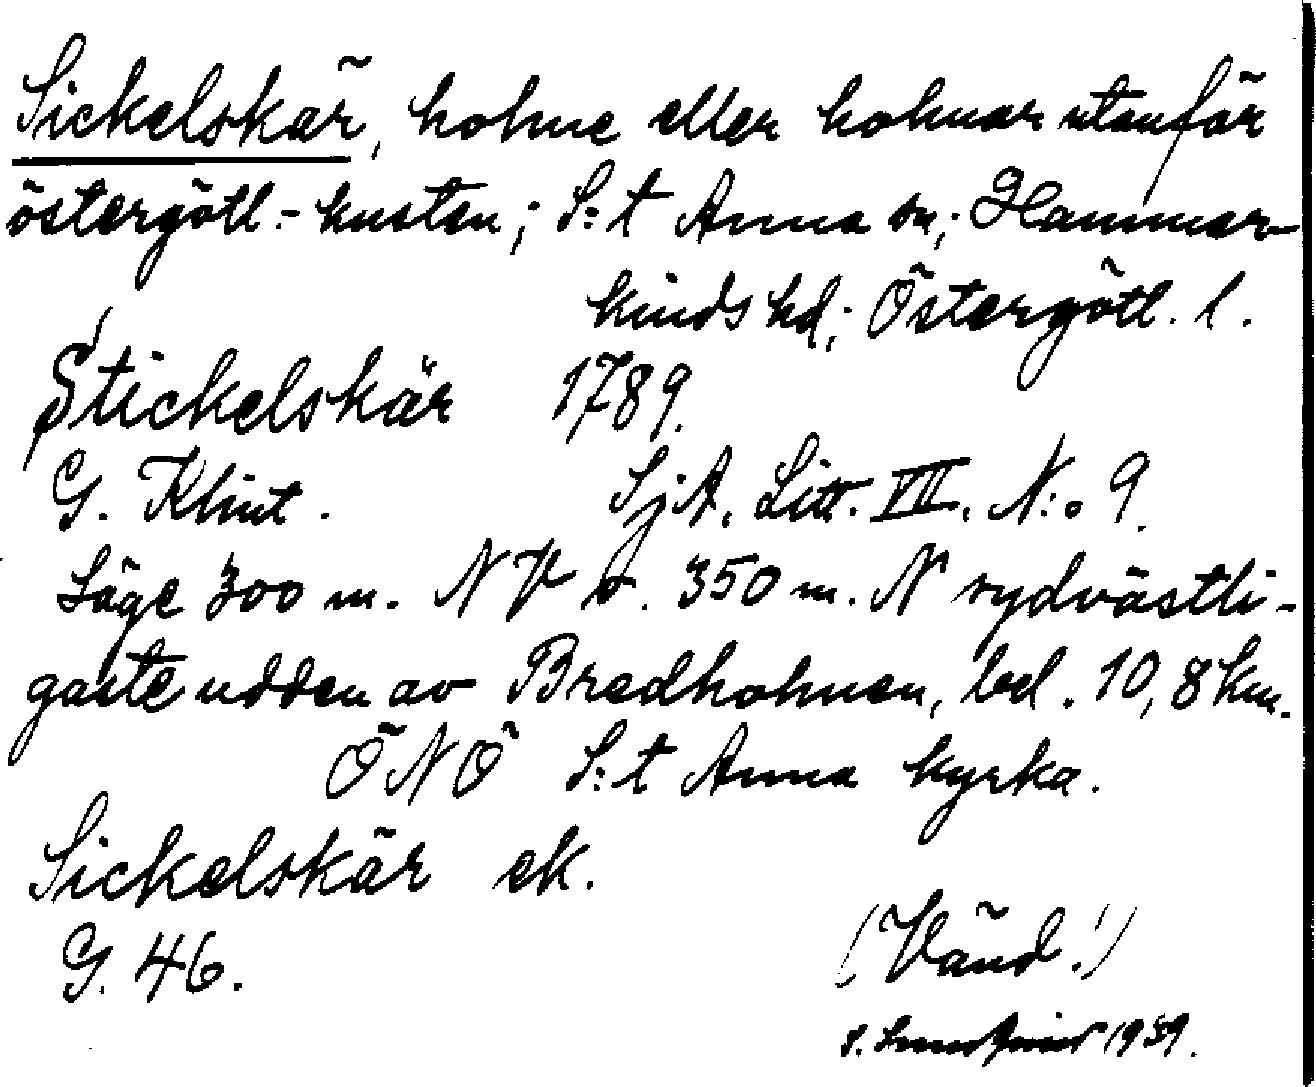 Sickelskär, holme eller holmar utanför
östergötl.-kusten; S:t Anna sn; Hammar-
kinds hd; Östergötl. l.
Stickelskär 1789.
G. Klint. SjA, Litt. VII. N:o 9.
Läge 300 m. NV o. 350 m. N sydvästli-
gaste udden av Bredholmen, bel. 10,8 km.
ÖNÖ S:t Anna kyrka.
Sickelskär ek.
G. 46.
(Vänd!)
1939.